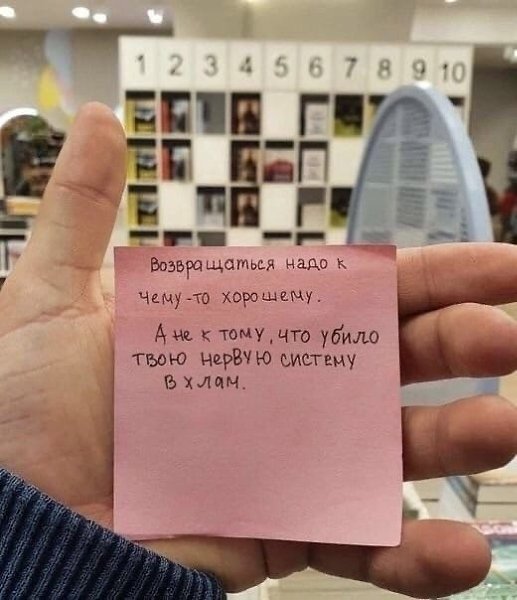 1 2 3 4 5 6 7 8 9 10
Возвращаться надо к
чему-то хорошему.
А не к тому, что убило
твою нервую систему
в хлам.